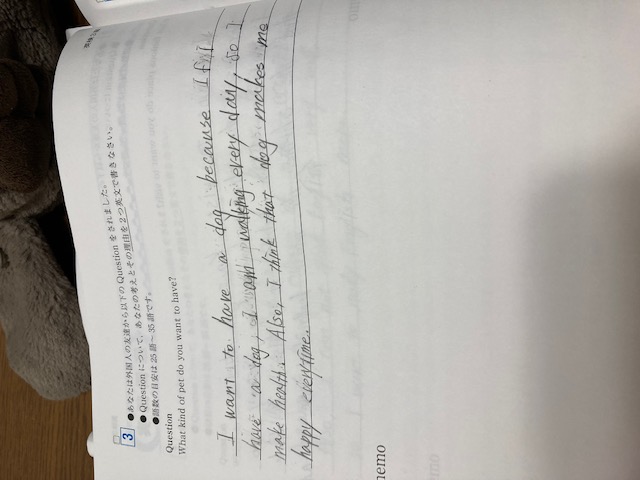 3
●あなたは外国人の友達から以下のQuestionをされました。
●Questionについて、あなたの考えとその理由を2つ英文で書きなさい。
●語数の目安は25語～35語です。
Question
What kind of pet do you want to have?
I want to have a dog because I
have a dog, I and walking every day, so I
make health. Also, I think that dog makes me
happy everytime.
memo